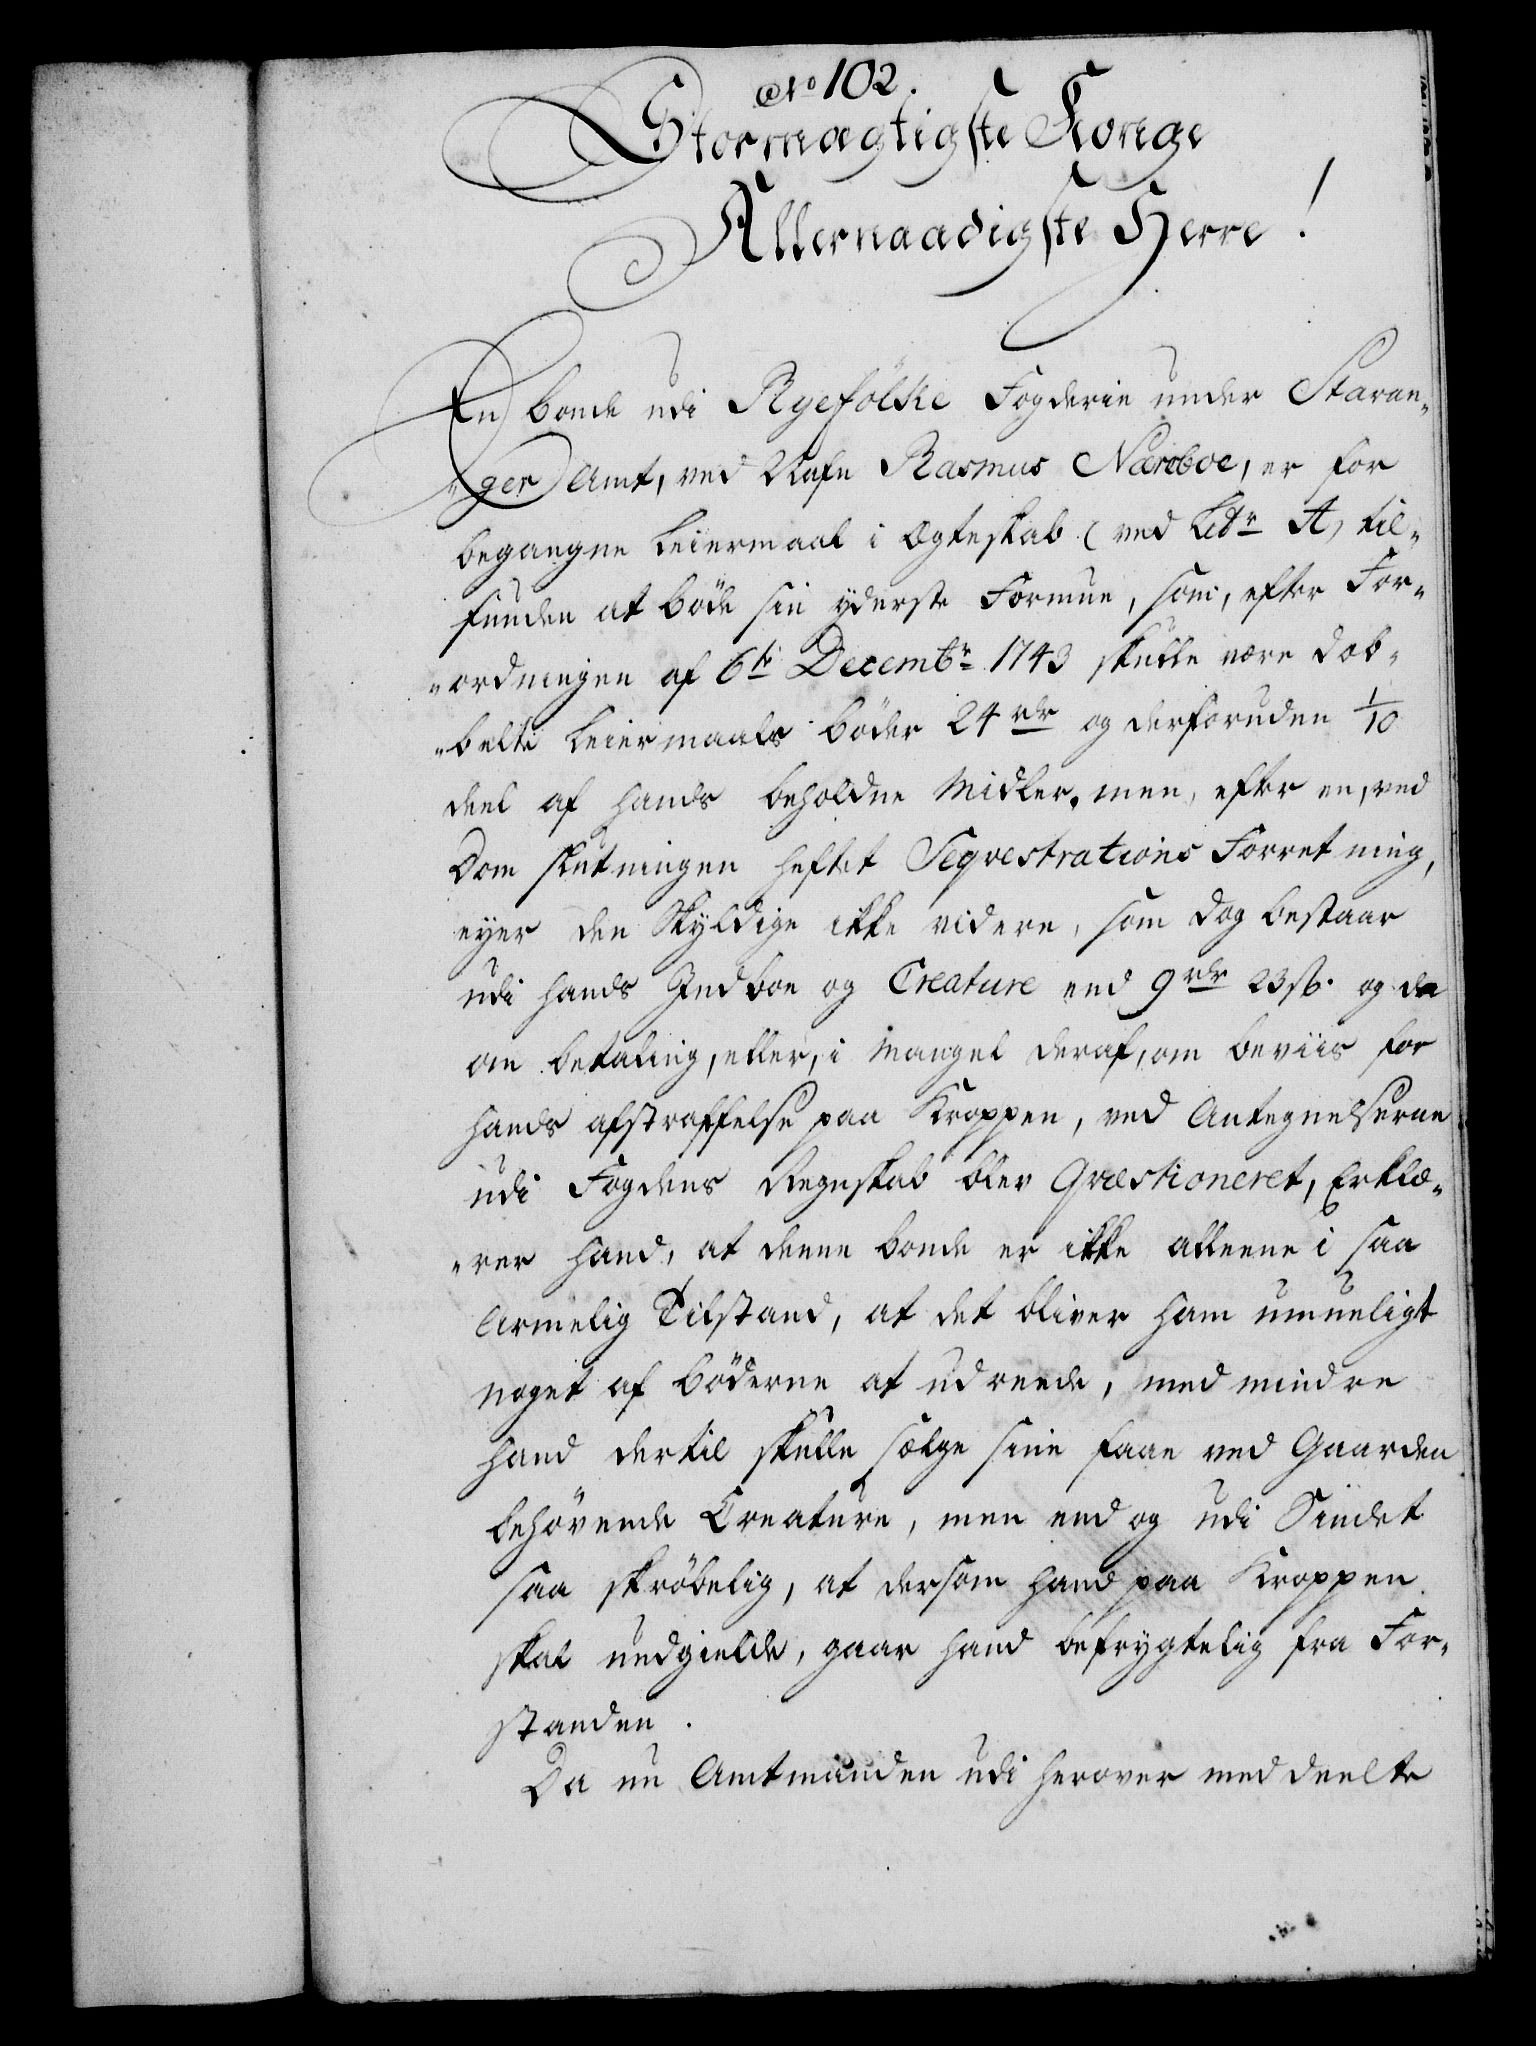 No 102.
Stormægtigste Konge
Allernaadigste Herre!
En bonde udi Ryefölke Fogderie under Stavan„
„ger Amt, ved Nafn Rasmus Nærøboe, er for
begangne Leiermaal i Ægteskab (ved Litr A) til„
funden at böde sin yderste Formue, som, efter For„
„ordningen af 6te Decembr 1743 skulle være dob„
„belte Leiermaals böder 24 rdr og derforuden 1/10
deel af hands beholdne Midler, men, efter en, ved
Dom slutningen heftet Seqvestrations Forretning,
eyer den Skyldige ikke videre, som dog bestaar
udi hands Indboe og Creature end 9 rdr 23 sk. og da
om betaling, eller, i Mangel deraf, om beviis for
hands afstraffelse paa Kroppen, ved Antegnelserne
udi Fogdens Regnskab blev Qvæstioneret, Erklæ„
„rer hand, at denne bonde er ikke alleene i saa
Armelig Tilstand, at det bliver ham umueligt
noget af böderne at udreede, med mindre
hand dertil skulle sælge sine faae ved Gaarden
behövende Creature, men end og udi Sindet
saa skröbelig, at dersom hand paa Kroppen
skal undgielde, gaar hand befrygtelig fra For„
standen.
Da nu Amtmanden udi herover meddeelte